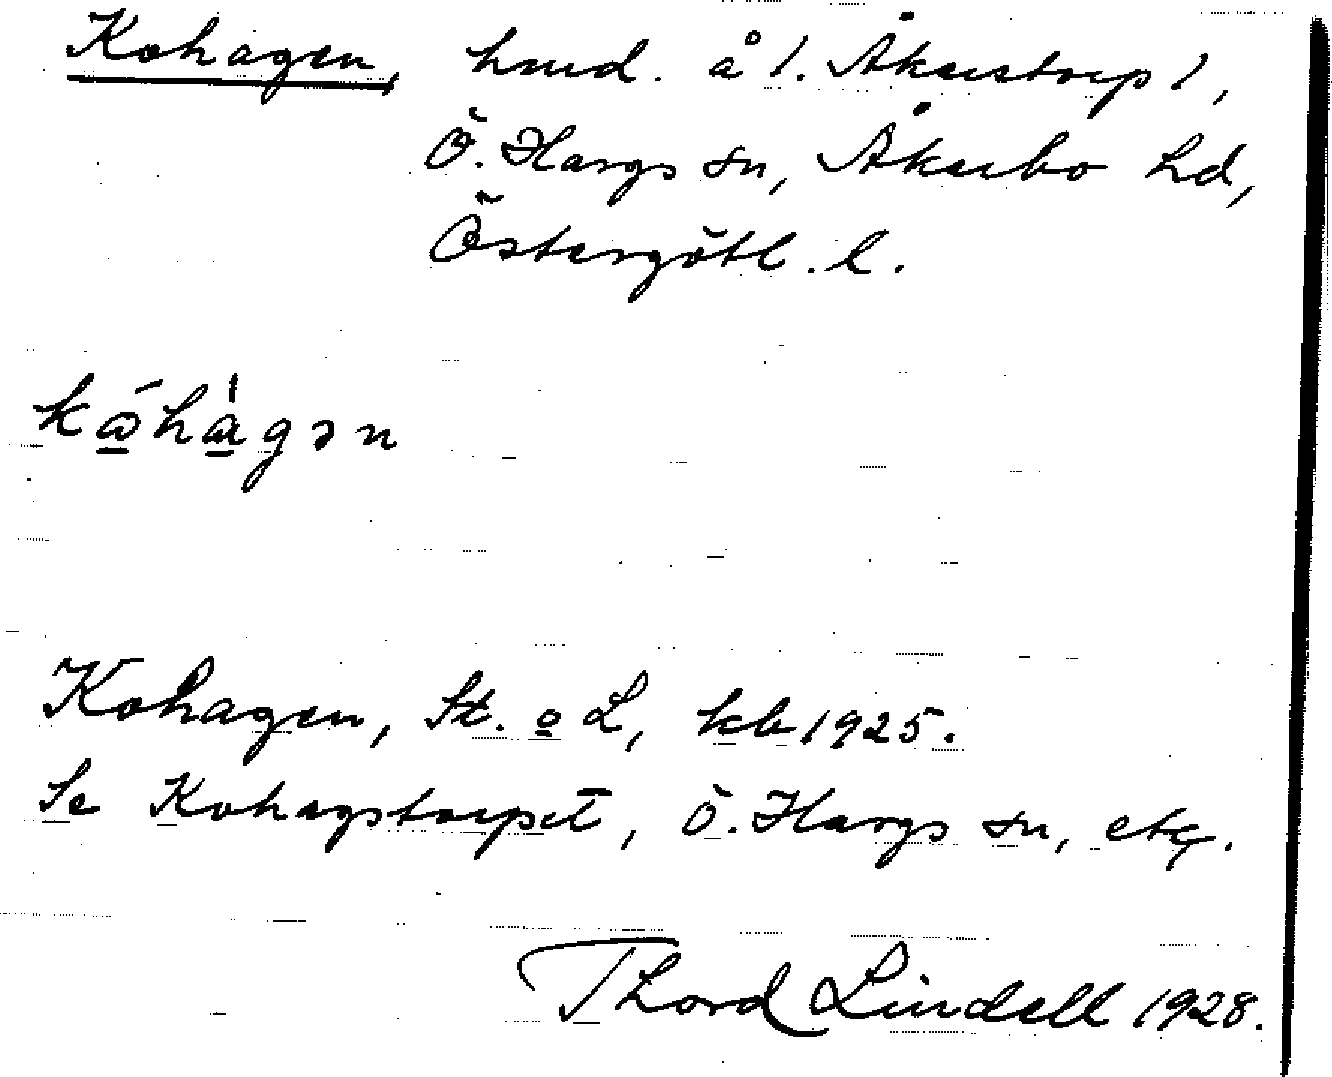 Kohagen, hmd. å 1. Åkerstorp 1,
Ö. Hargs sn, Åkerbo hd,
Östergötl. l.
kω̄́hàgən
Kohagen, St. o L, kb 1925.
Se Kohagstorpet, Ö. Hargs sn, etc.
Thord Lindell 1928.